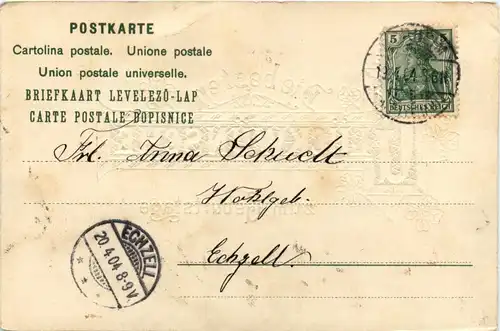 POSTKARTE
Cartolina postale. Unione postale
Union postale universelle.
BRIEFKAART LEVELEZÖ-LAP
CARTE POSTALE DOPISNICE
5 5
DEUTSCHES REICH
Frl. Anna Schucht
Wohlgeb.
Echzell.
ECHZELL
20.4.04 8-9V